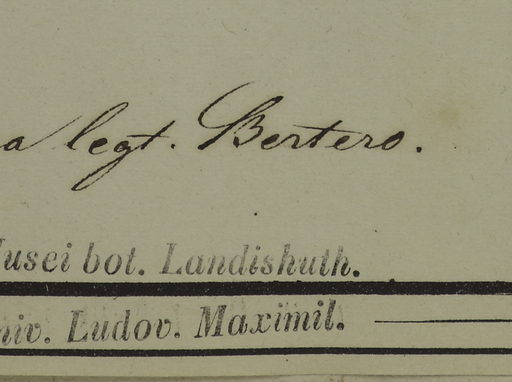 a legt. Bertero.
Musei bot. Landishuth.
Univ. Ludov. Maximil.